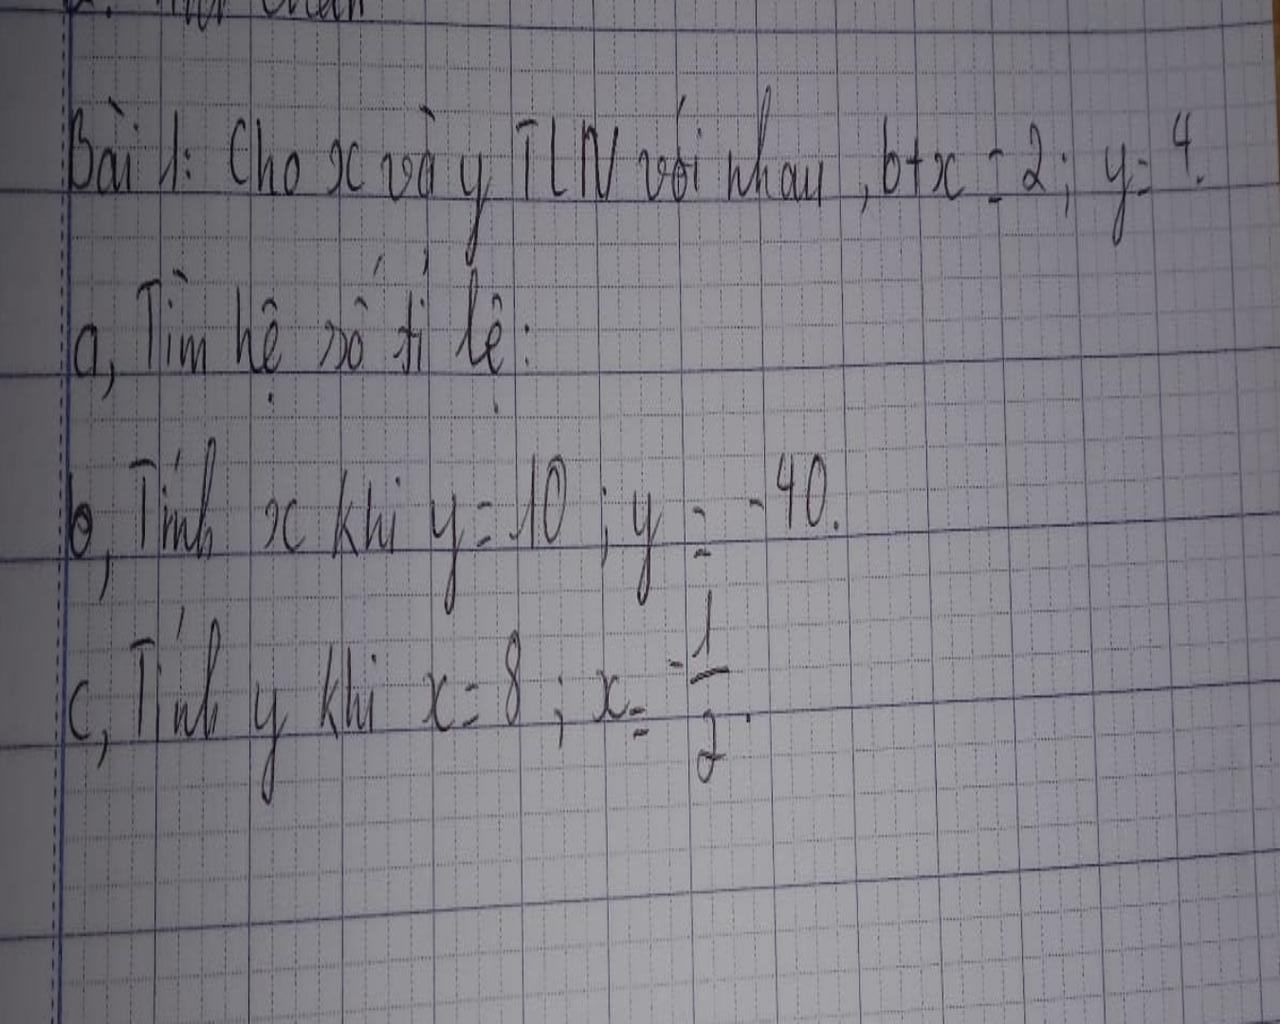 Bài 1: Cho x và y TLN với nhau, b+x = 2; y = 4.
a, Tìm hệ số tỉ lệ:
b, Tính x khi y = 10; y = -40.
c, Tính y khi x = 8; x = -1/2.